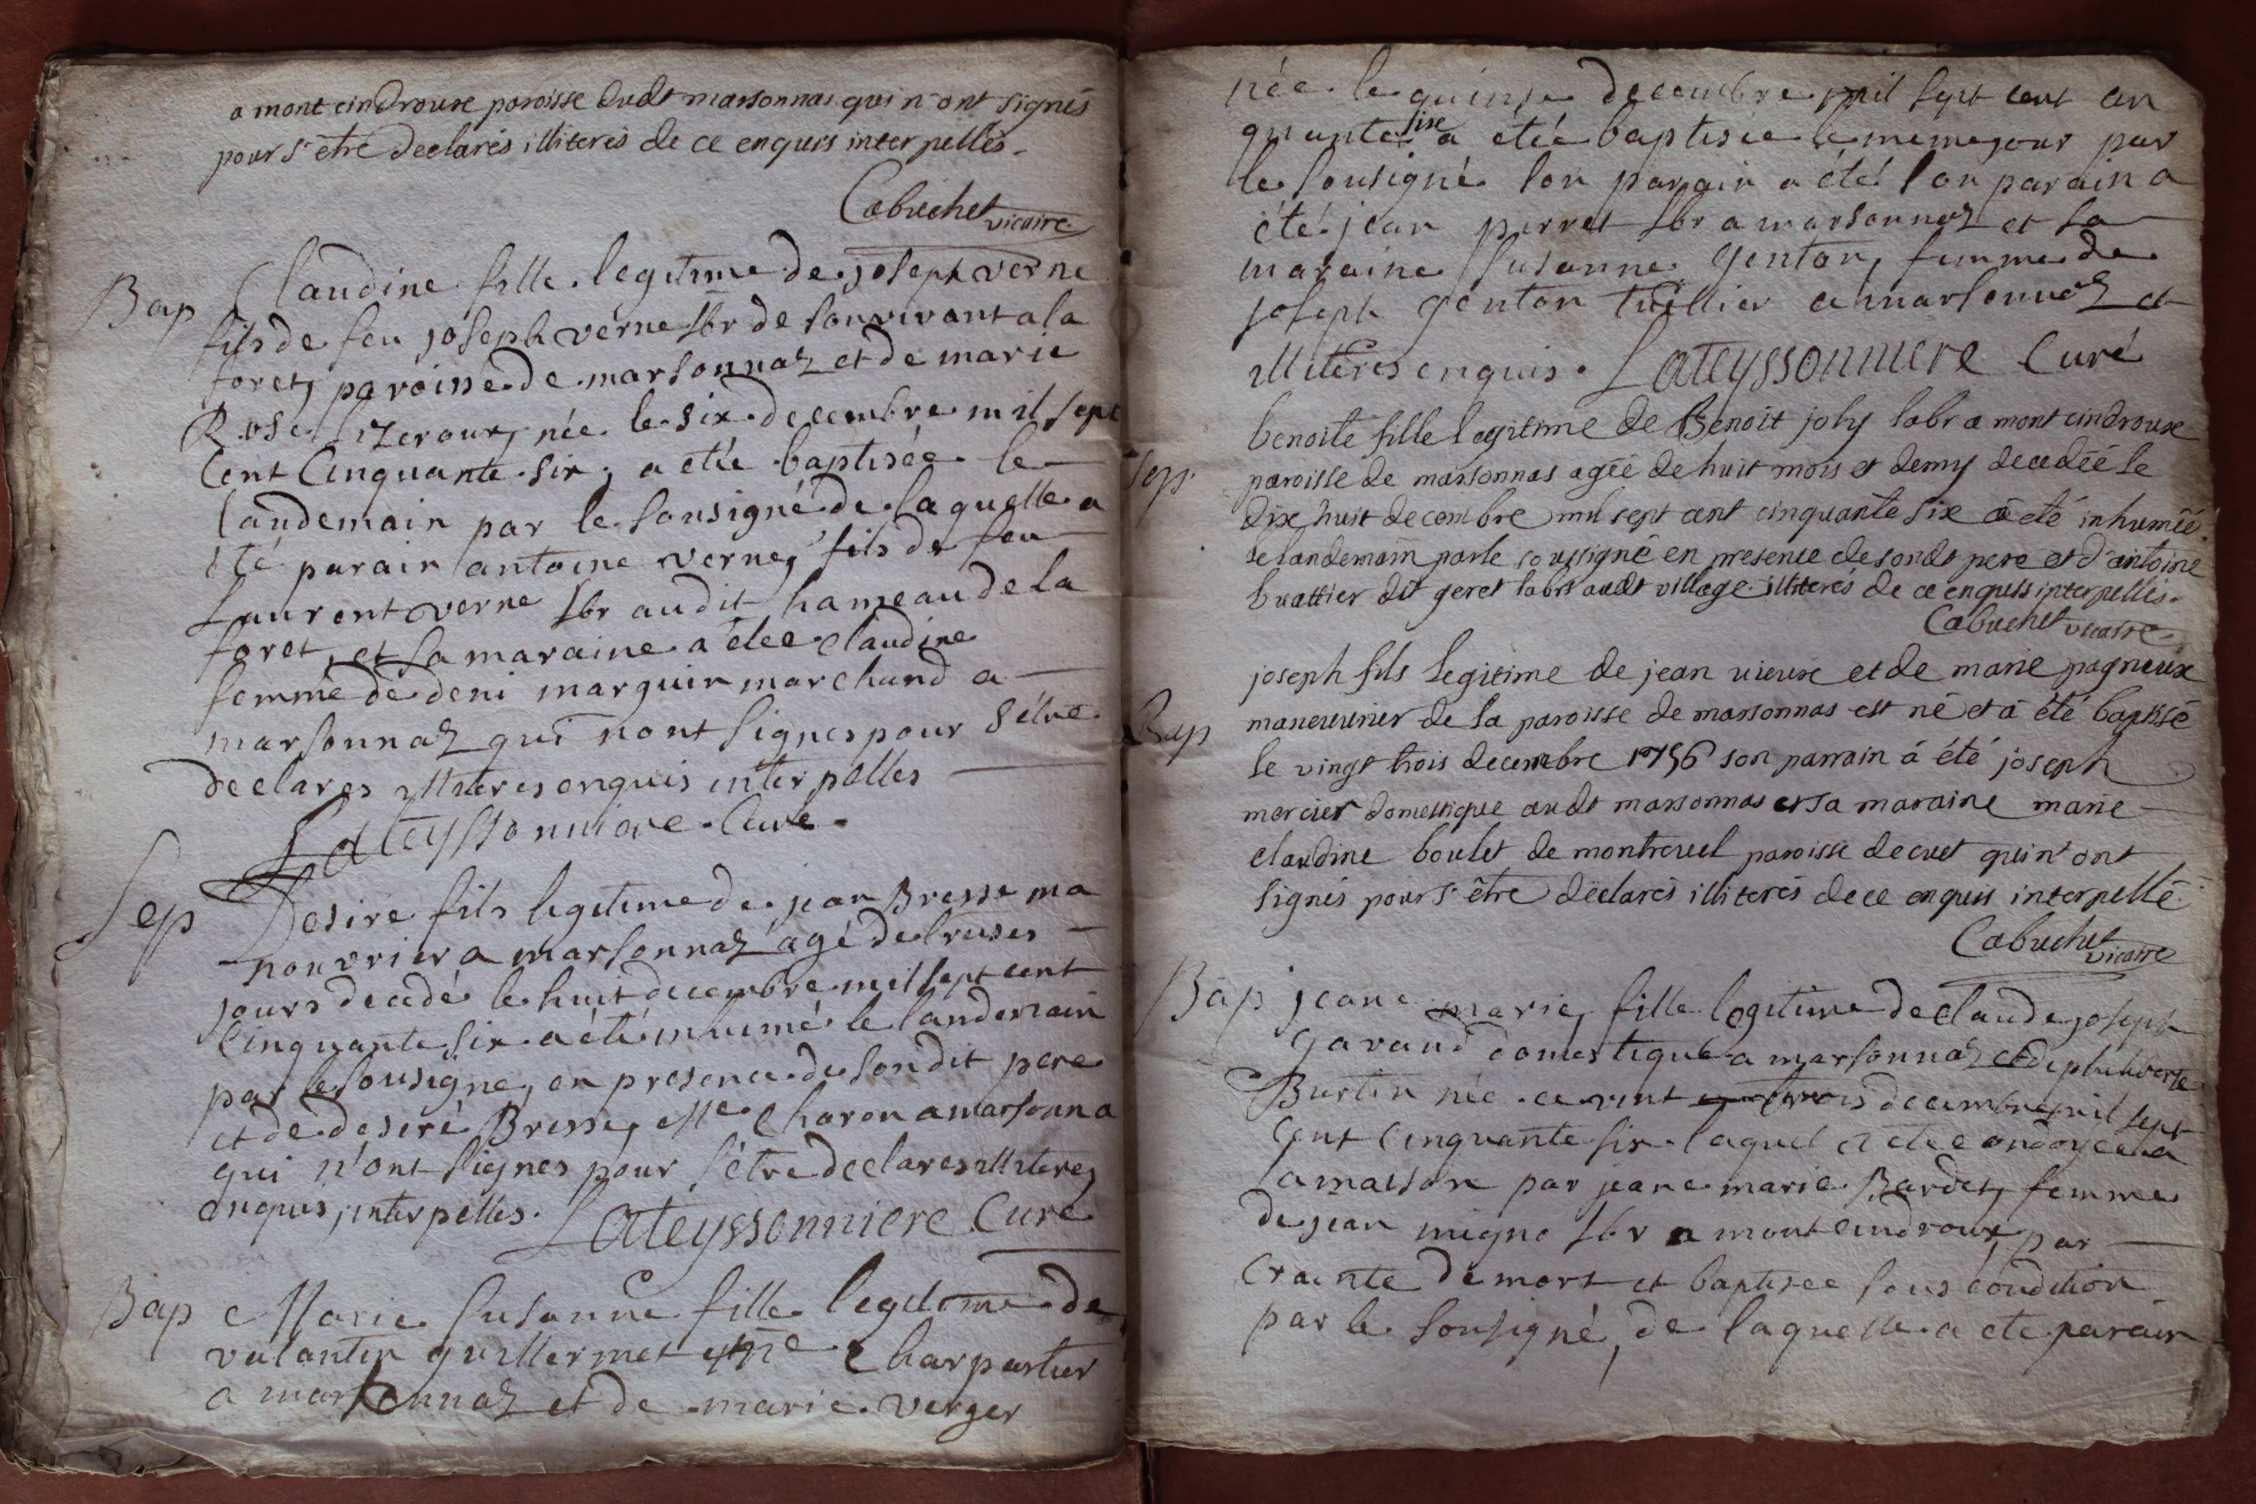 a mont cindroux paroisse dudt marsonnas qui n'ont signés
pour s'être declarés illiterés de ce enquis interpellés.
Cabuchet vicaire
Bap Claudine fille legitime de joseph verne
fils de feu joseph verne lbr de son vivant a la
foret, paroisse de marsonnaz et de marie
Rose née le six decembre mil sept
Cent Cinquante six, a etée baptisée le
landemain par le sousigné de laquelle a
été parain antoine verne, fils de feu
Laurent verne lbr audit hameau de la
foret, et sa maraine a étée claudine
femme de deni marguin marchand a
marsonnaz qui nont signes pour sétre
declares illiteres enquis interpelles
Lateyssonniere Curé.
Sep Desire fils legitime de jean Bresse ma
nouvrier a marsonnaz agé de treises
jours decedé le huit decembre mil sept cent
Cinquante six a été inhumé le landemain
par le sousigne, en presence de sondit pere
et de desiré Bresse, charon a marsonna
qui n'ont signes pour s'étre declares illiteres
enquis, interpelles. Lateyssonniere Curé
Bap Marie Susanne fille legitime de
valantin guillermet charpantier
a marsonnaz et de marie verger
née le quinse decembre mil sept cent cin
quante sixe a étée baptisée le meme jour par
le sousigné son parain a été son parain a
été jean perret lbr a marsonnaz et sa
maraine Susanne genton, femme de
joseph genton tuillier a marsonnaz et
illiteres enquis. Lateyssonniere Curé
Sep benoite fille legitime de Benoit joly labr a mont cindroux
paroisse de marsonnas agée de huit mois et demy decedée le
dix huit decembre mil sept cent cinquante six a été inhumée
le landemain par le soussigné en presence de sondt pere et d'antoine
buattier dit geret labr audt village illiterés de ce enquis interpellés.
Cabuchet vicaire
Bap joseph fils legitime de jean vieux et de marie pagneux
maneuvrier de la paroisse de marsonnas est né et a été baptisé
le vingt trois decembre 1756 son parrain á été joseph
mercier domestique audt marsonnas et sa maraine marie
claudine boulet de montrevel paroisse de cuet qui n'ont
signés pour s'être déclarés illiterés de ce enquis interpellé
Cabuchet vicaire
Bap jeane marie, fille legitime de claude joseph
gavand domestique a marsonnaz et de philiberte
Burtin née ce vint trois decembre mil sept
Cent Cinquante six laquel a étée ondoyée a
a maison par jeane marie Bardet, femme
de jean migno lbr a mont cindroux, par
Crainte de mort et baptisee sous condition
par le sousigné, de laquelle a ete parain